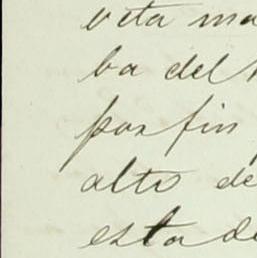 veta ma
ba del
por fin
alto de
estade